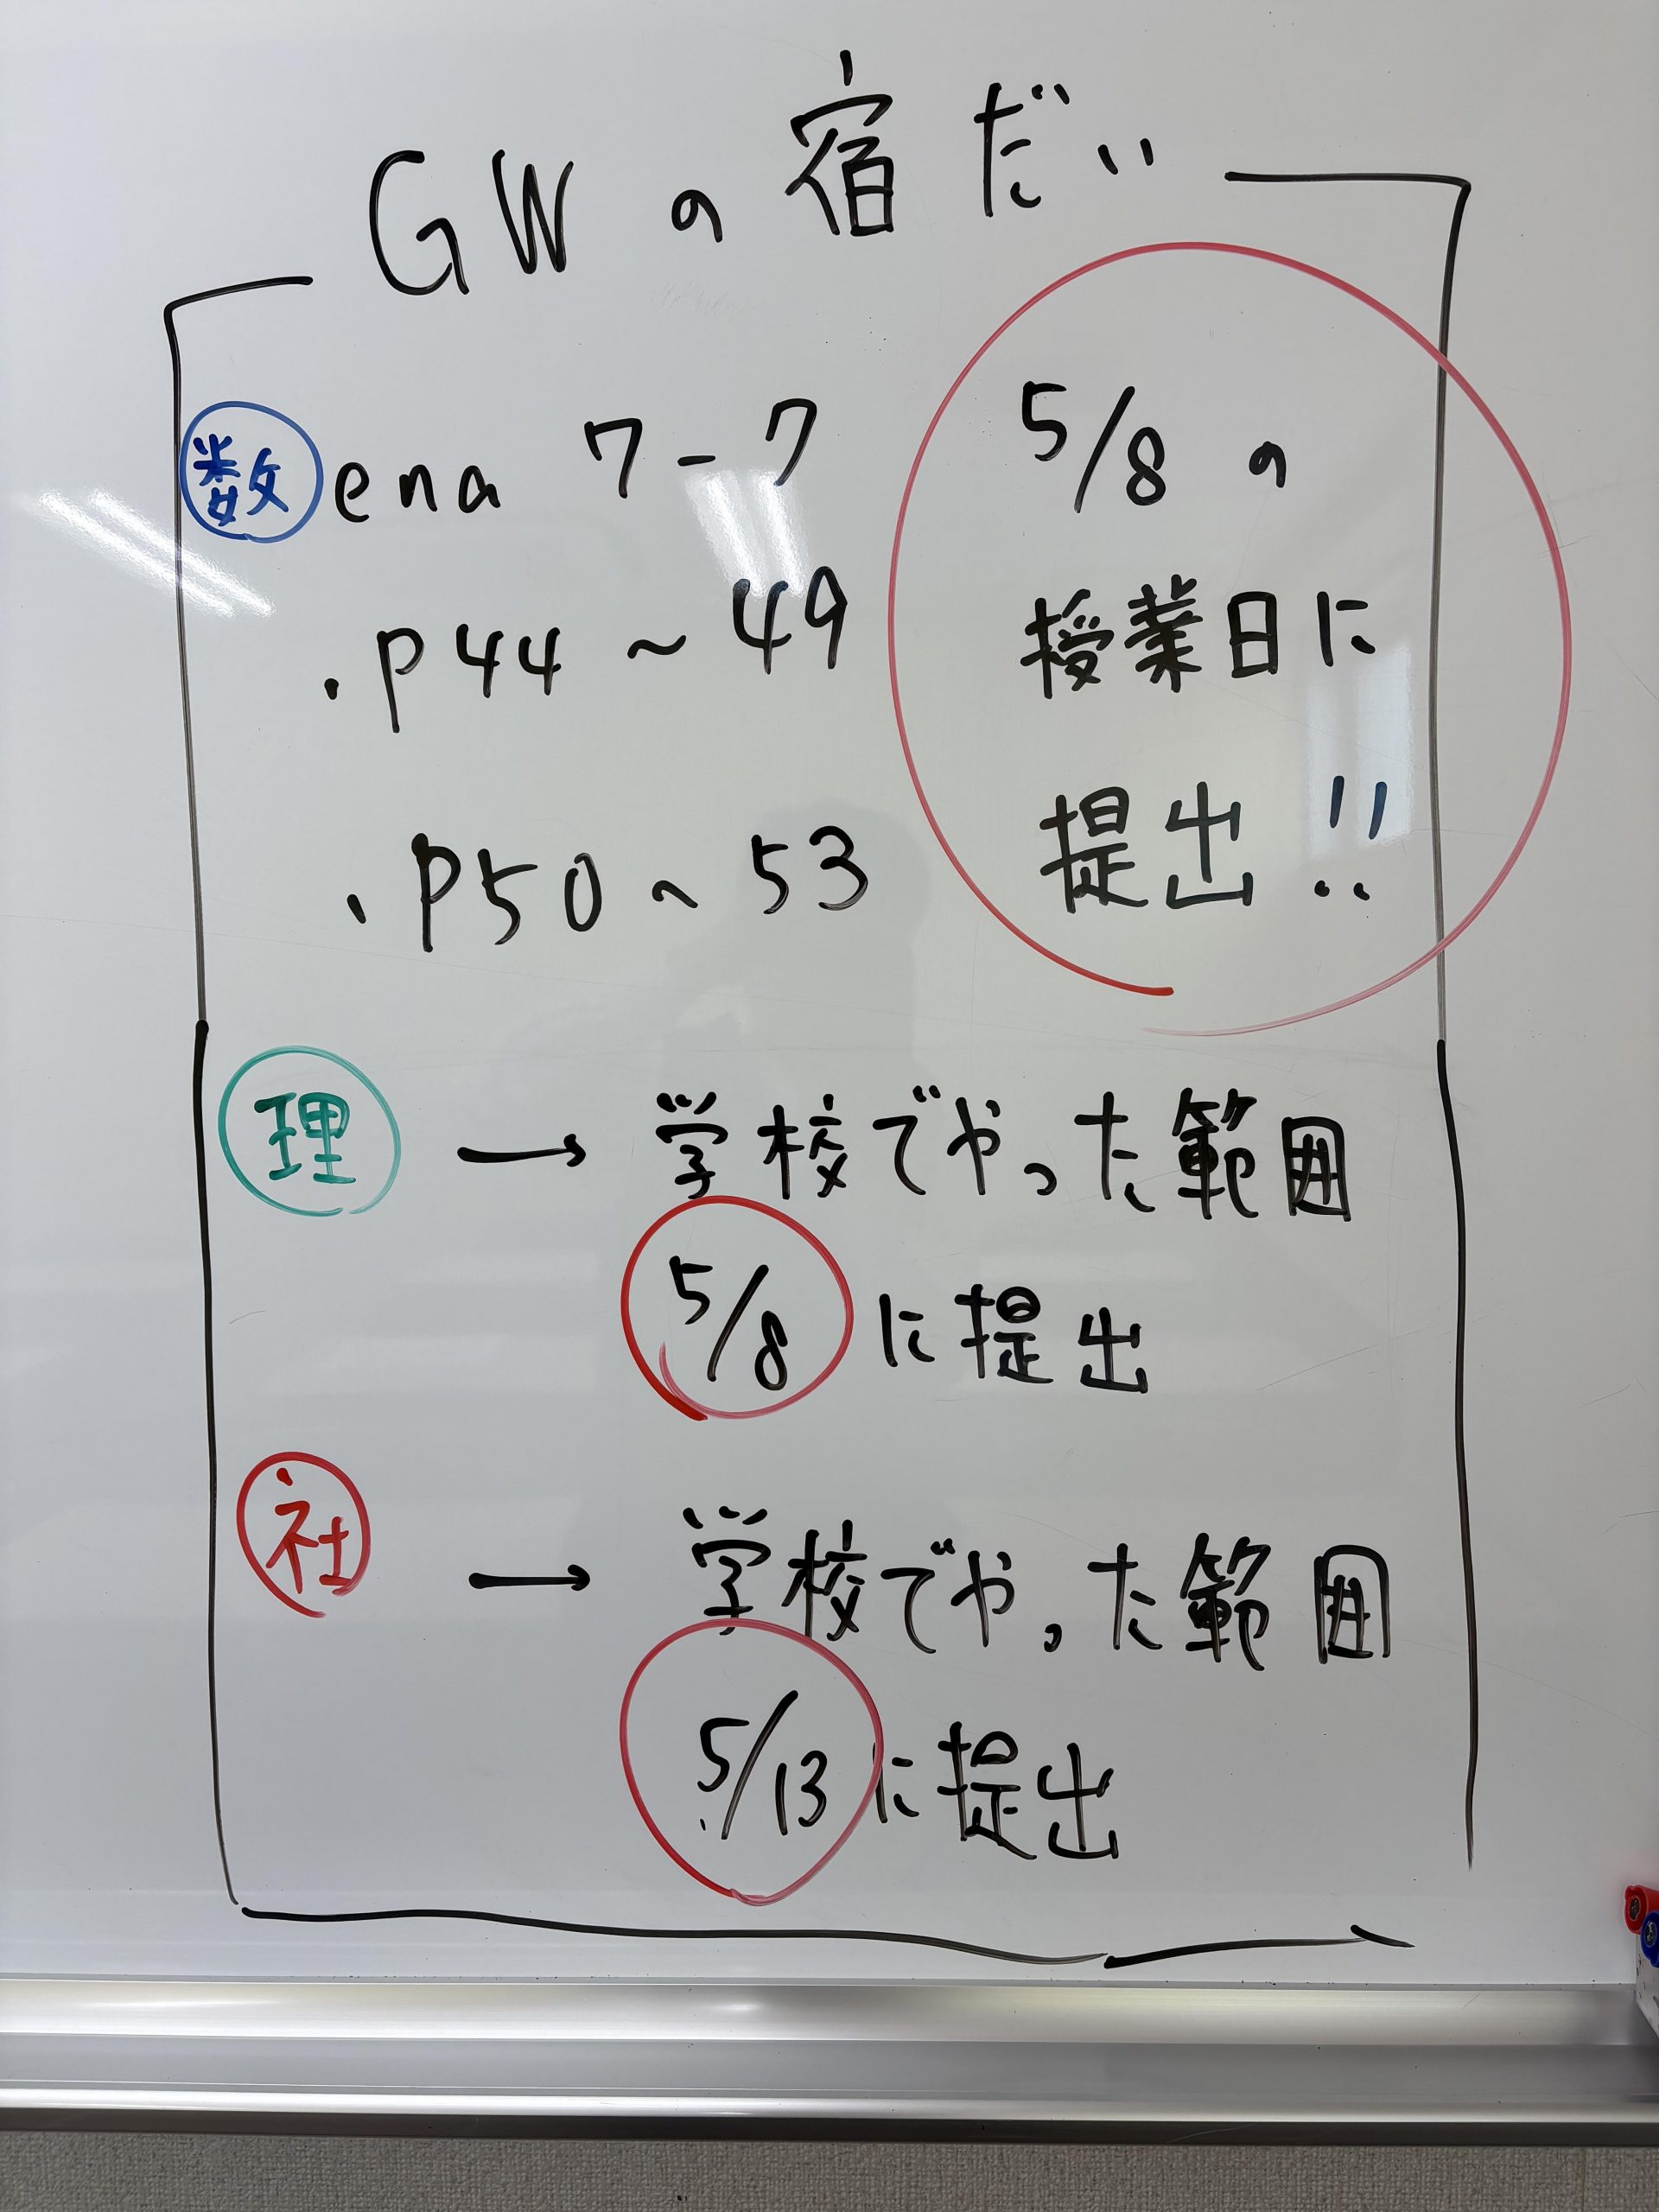 GWの宿だい
数 ena 7-7
・P44～49
・P50～53
5/8の
授業日に
提出!!
理 → 学校でやった範囲
5/8に提出
社 → 学校でやった範囲
5/13に提出